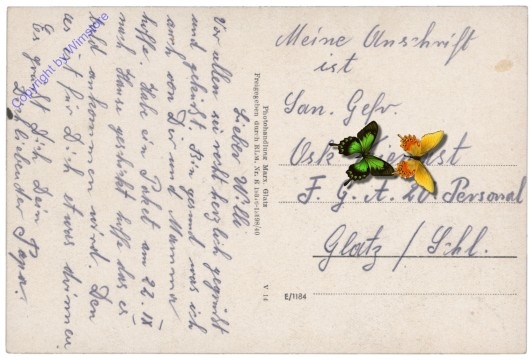 Lieber Willi
Vor allem sei recht herzlich gegrüsst
und geküsst. Bin gesund was ich
auch von Dir und Mamma
hoffe. Habe ein Paket am 22. IX
nach Hause geschickt hoffe das es
bald ankommen wird. Den
es ist für Dich etwas drinnen.
Es grüsst Dich Dein
Dich liebender Papa.
Photohandlung Marx, Glatz
Freigegeben durch RLM. Nr.
V 14
Meine Anschrift
ist
San. Gefr.
Osk
F. G. A. 20 Personal
Glatz / Schl.
E/1184
Copyright by Wimstore